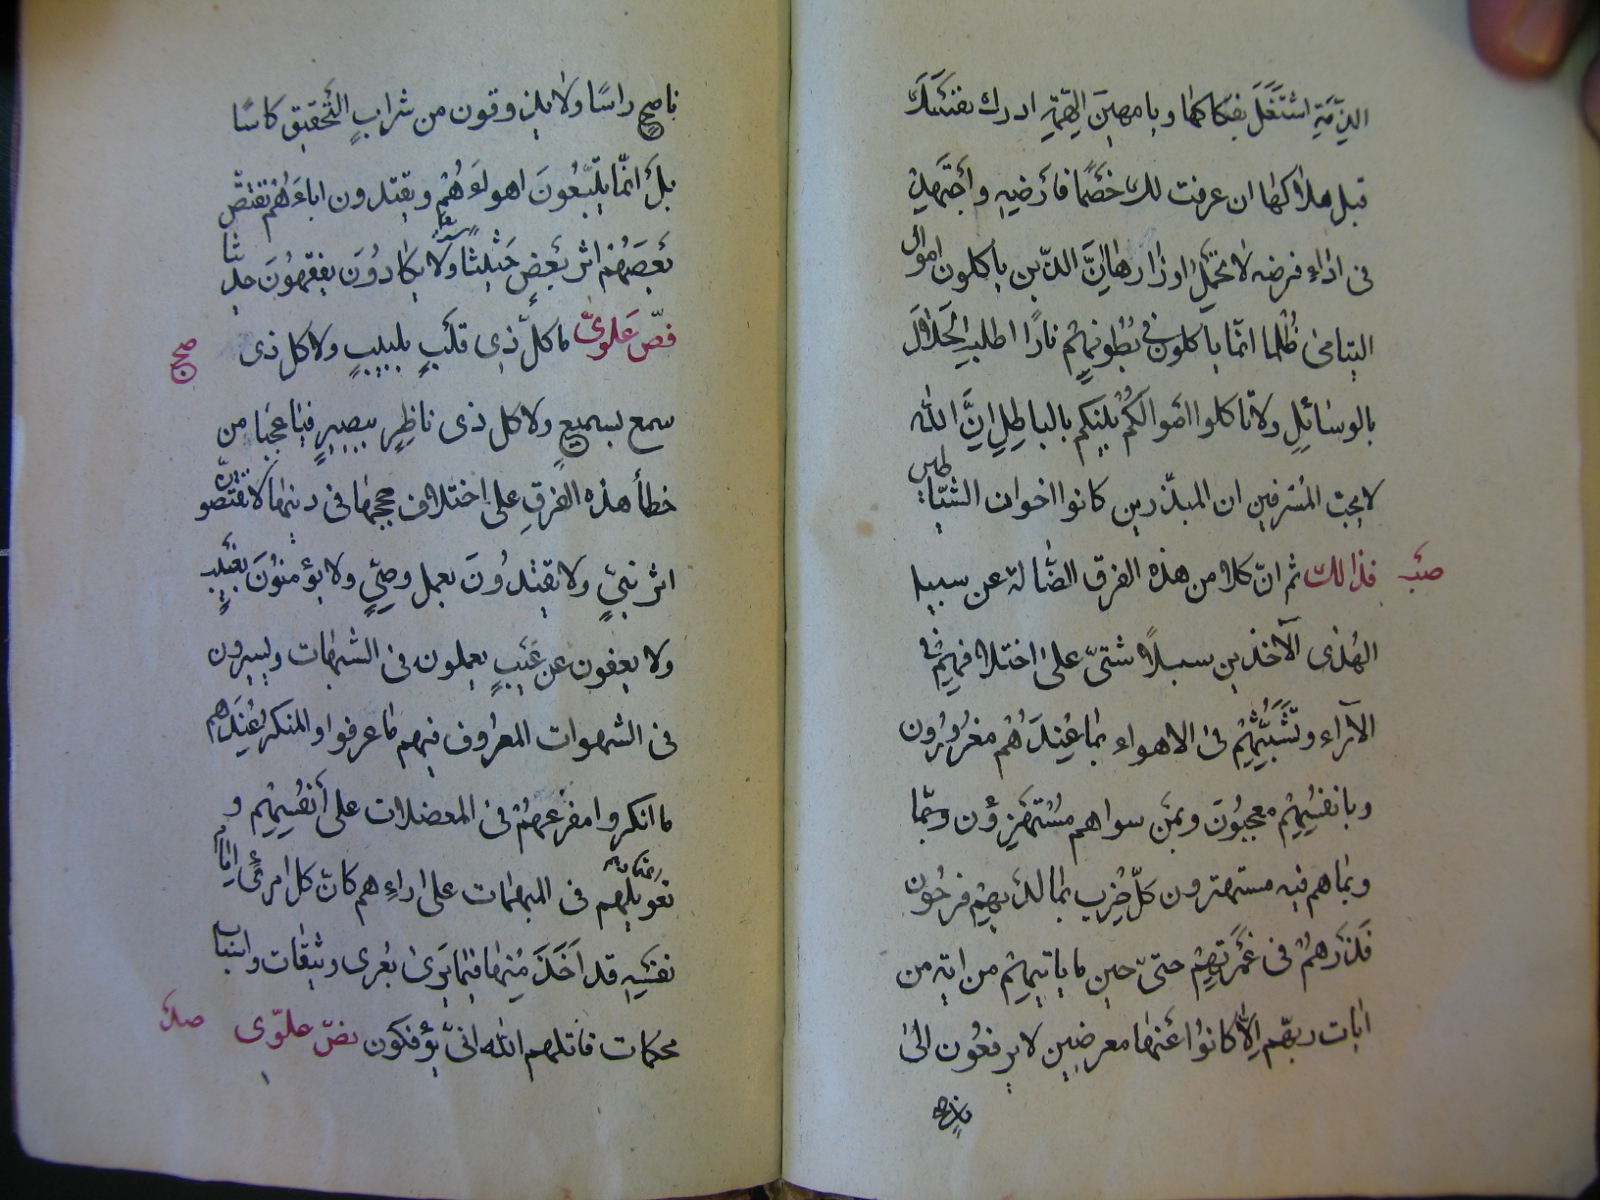 الذمّة اشتغل بفكاكها ويا مهين الهمّة ادرك نفسك
قبل هلاكها ان عرفت لك خصما فارضيه واجتهد
فى اداء فرضه لا تحتمل اوزارها انّ الذين ياكلون اموال
اليتامى ظلما انما ياكلون فى بطونهم نارا اطلب الحلال
بالوسائل ولا تاكلوا اموالكم بينكم بالباطل انّ الله
لا يحب المسرفين ان المبذّرين كانوا اخوان الشياطين
صبّ
فذالك ثم انّ كلا من هذه الفرق الضّالة عن سبيل
الهدى الآخذين سبلا شتّى على اختلافهم فى
الآراء وتشتّتهم فى الاهواء بما عندهم مغرورون
وبانفسهم معجبون وبمن سواهم مستهزؤن
وبما هم فيه مستهترون كلّ حزب بما لديهم فرحون
فذرهم فى غمرتهم حتىّ حين ما ياتيهم من اية من
ايات ربهّم الّا كانوا عنها معرضين لا يرفعون الى
ناصح
ناصح راسا ولا يذوقون من شراب التحقيق كاسا
بل انّما يتّبعون اهواءهم ويقتدون اباءهم تقتصّ
بعضهم اثر بعض حثيثا ولا يكادون يفقهون حديثا
فصّ علوىّ ما كلّ ذى قلب بلبيب ولا كل ذى
صح
سمع بسميع ولا كل ذى ناظر ببصير فيا عجبا من
خطأ هذه الفرق على اختلاف حججها فى دينها لا تقتصون
اثر نبىّ ولا يقتدون بعمل وصىّ ولا يؤمنون بغيب
ولا يعفون عن عيب يعملون فى الشبهات ويسيرون
فى الشهوات المعروف فيهم ما عرفوا والمنكر عندهم
ما انكروا مفزعهم فى المعضلات على أنفسهم و
تعويلهم فى المبهمات على اراءهم كانّ كل امرئ امام
نفسه قد اخذ منها فيما يرى بعرى وثيقات واسباب
محكمات قاتلهم الله انىّ يؤفكون نصّ علوّى